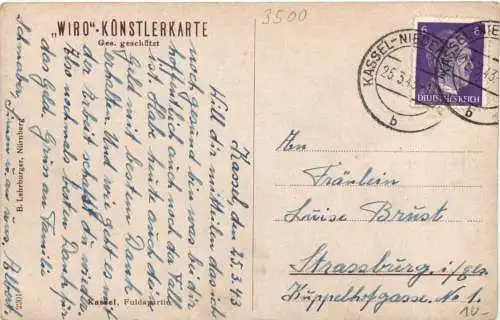 „WIRO“-KÜNSTLERKARTE
Ges. geschützt
3500
Kassel, den 25.3.43
Will dir mitteilen das ich
noch gesund bin was bei dir
hoffentlich auch noch der Fall
ist. Habe heute auch die
Geld mit besten Dank
erhalten. Und wie geht es mit
der Arbeit schaffst du wieder.
Also nochmals besten Dank für
das Geld. Gruss an Familie
Schnabel, Simon u. an uns, Albert.
KASSEL-NIEDE
25.3.43
b
6
DEUTSCHES REICH
An
Fräulein
Luise Brust
Strassburg i/ges
Kuppelhofgasse No. 1.
10-
B. Lehrburger, Nürnberg
2201
Kassel, Fuldapartie